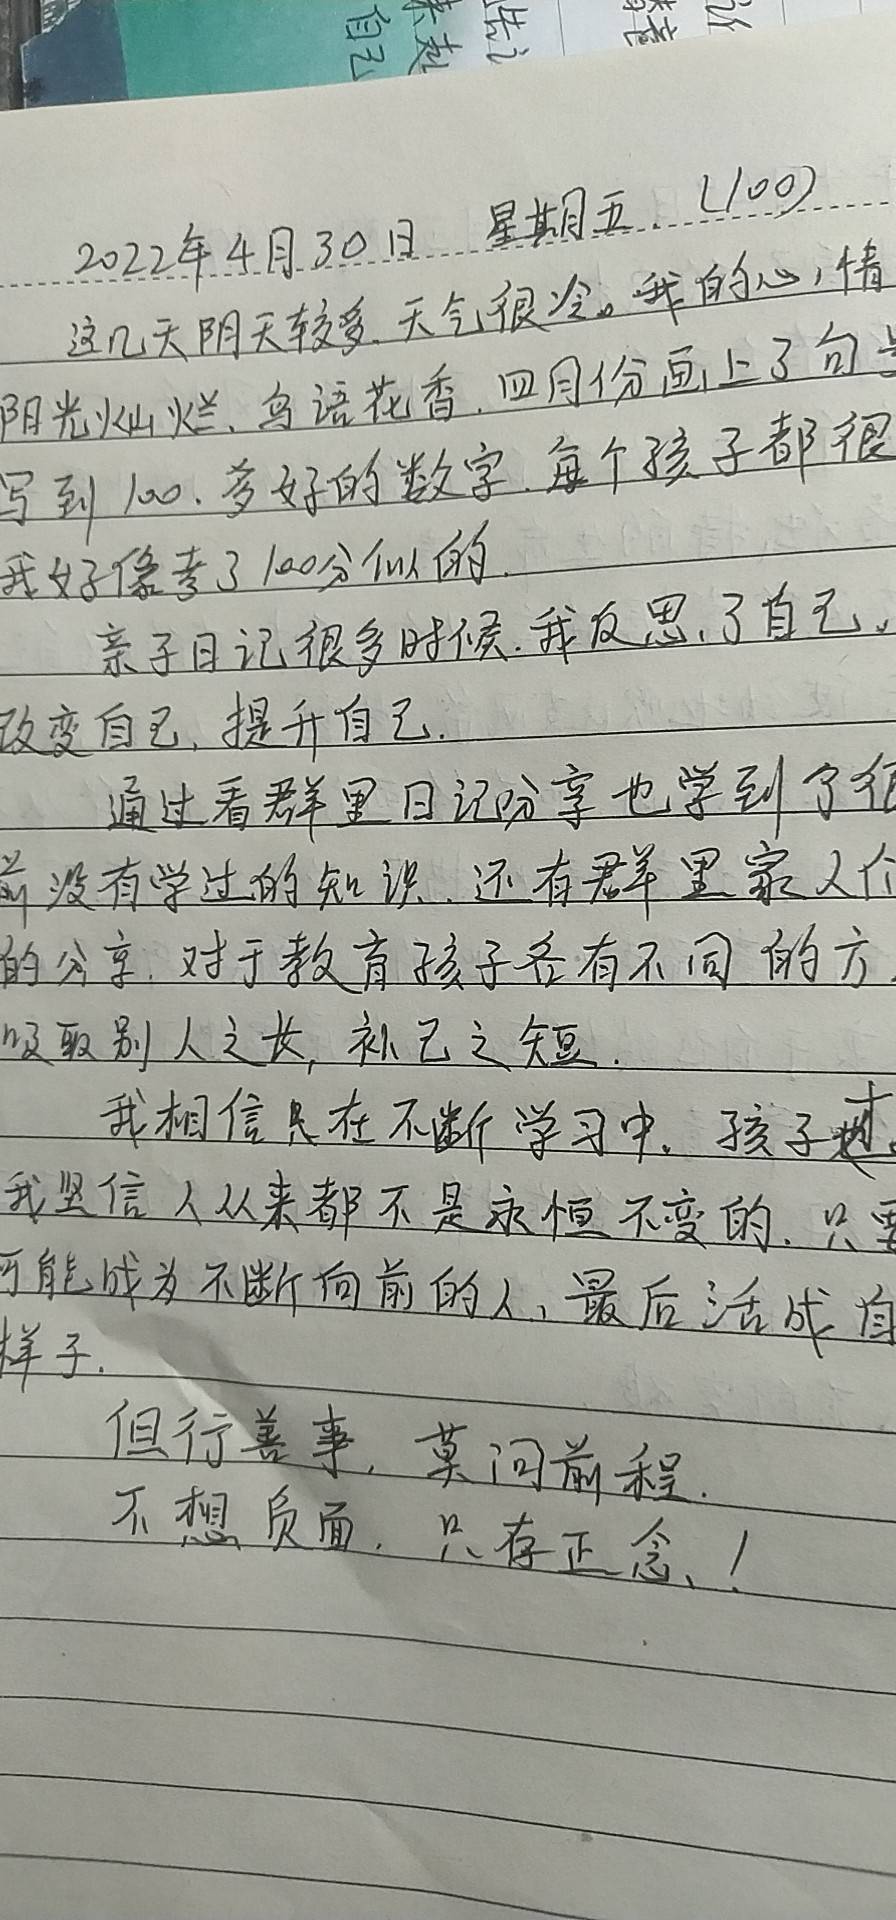 自己
来越
告诉
意
诉
2022年4月30日 星期五 (100)
这几天阴天较多.天气很冷。我的心情
阳光灿烂、鸟语花香.四月份画上了句号
写到100.多好的数字.每个孩子都很
我好像考了100分似的.
亲子日记很多时候.我反思了自己。
改变自己,提升自己.
通过看群里日记分享也学到了很
前没有学过的知识.还有群里家人们
的分享.对于教育孩子各有不同的方
吸取别人之长,补己之短.
我相信只在不断学习中。孩子才
我坚信人从来都不是永恒不变的.只要
可能成为不断向前的人,最后活成自
样子.
但行善事,莫问前程.
不想负面.只存正念、!